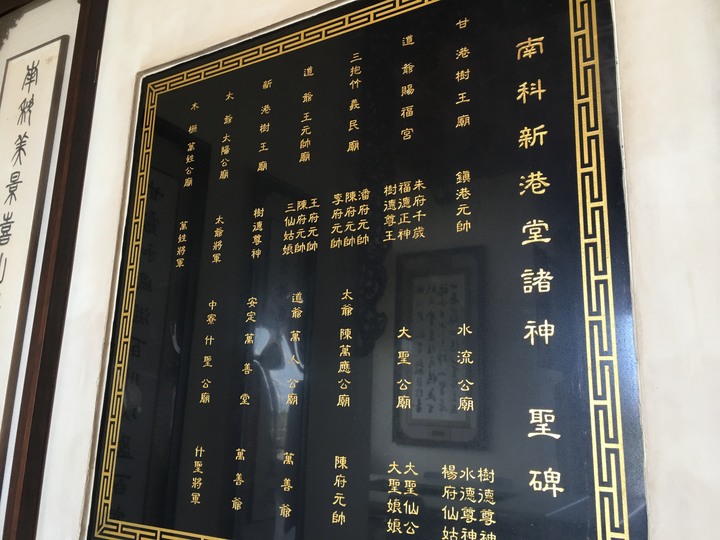 南科新港堂諸神 聖碑
甘港樹王廟 鎮港元帥 水流公廟 樹德尊神
水德尊神
楊府仙姑
道爺賜福宮 朱府千歲
福德正神
樹德尊王 大聖公廟 大聖仙公
大聖娘娘
三抱竹義民廟 潘府元帥
陳府元帥
李府元帥 太爺陳萬應公廟 陳府元帥
道爺王元帥廟 王府元帥
陳府元帥
三仙姑娘 道爺萬人公廟 萬善爺
新港樹王廟 樹德尊神 安定萬善堂 萬善爺
太爺太陽公廟 太爺將軍 中寮什聖公廟 什聖將軍
木柵萬姓公廟 萬姓將軍
南科美景喜山